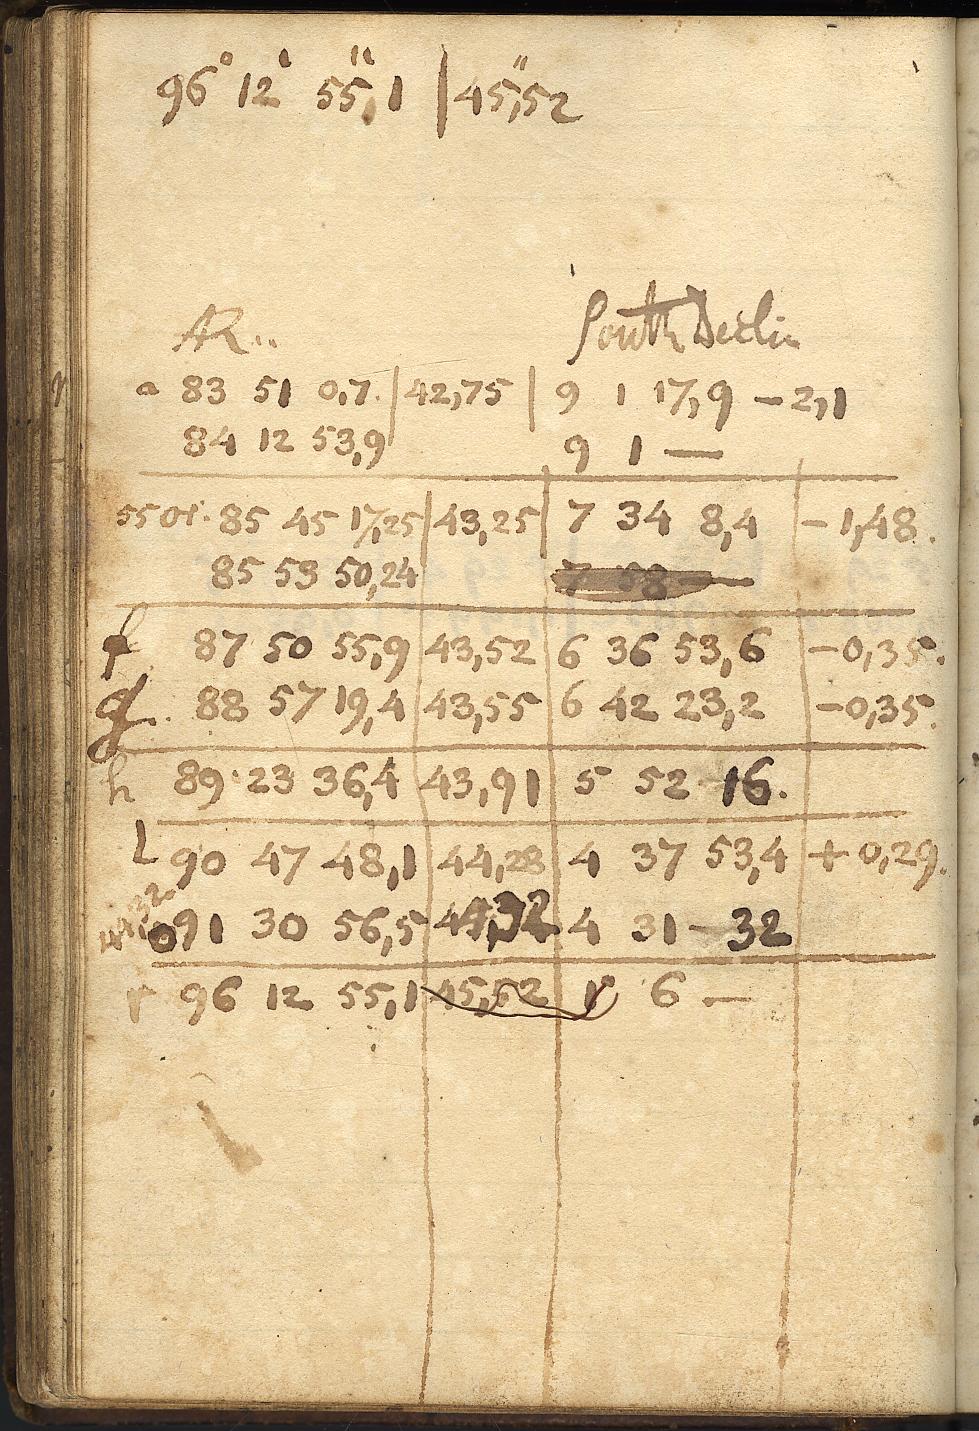 96° 12' 55",1 | 45",52
AR.. South Declin
a 83 51 0,7. | 42,75 | 9 1 17,9 – 2,1
84 12 53,9 9 1 —
55 Ori. 85 45 17,25 | 43,25 | 7 34 8,4 | – 1,48.
85 53 50,24 7 58 —
f 87 50 55,9 | 43,52 | 6 36 53,6 | – 0,35.
g. 88 57 19,4 | 43,55 | 6 42 23,2 | – 0,35.
h 89 23 36,4 | 43,91 | 5 52 16.
L 90 47 48,1 | 44,28 | 4 37 53,4 | + 0,29.
44,32
o 91 30 56,5 | 44,32 | 4 31 – 32
r 96 12 55,1 | 45,52 | 6 —